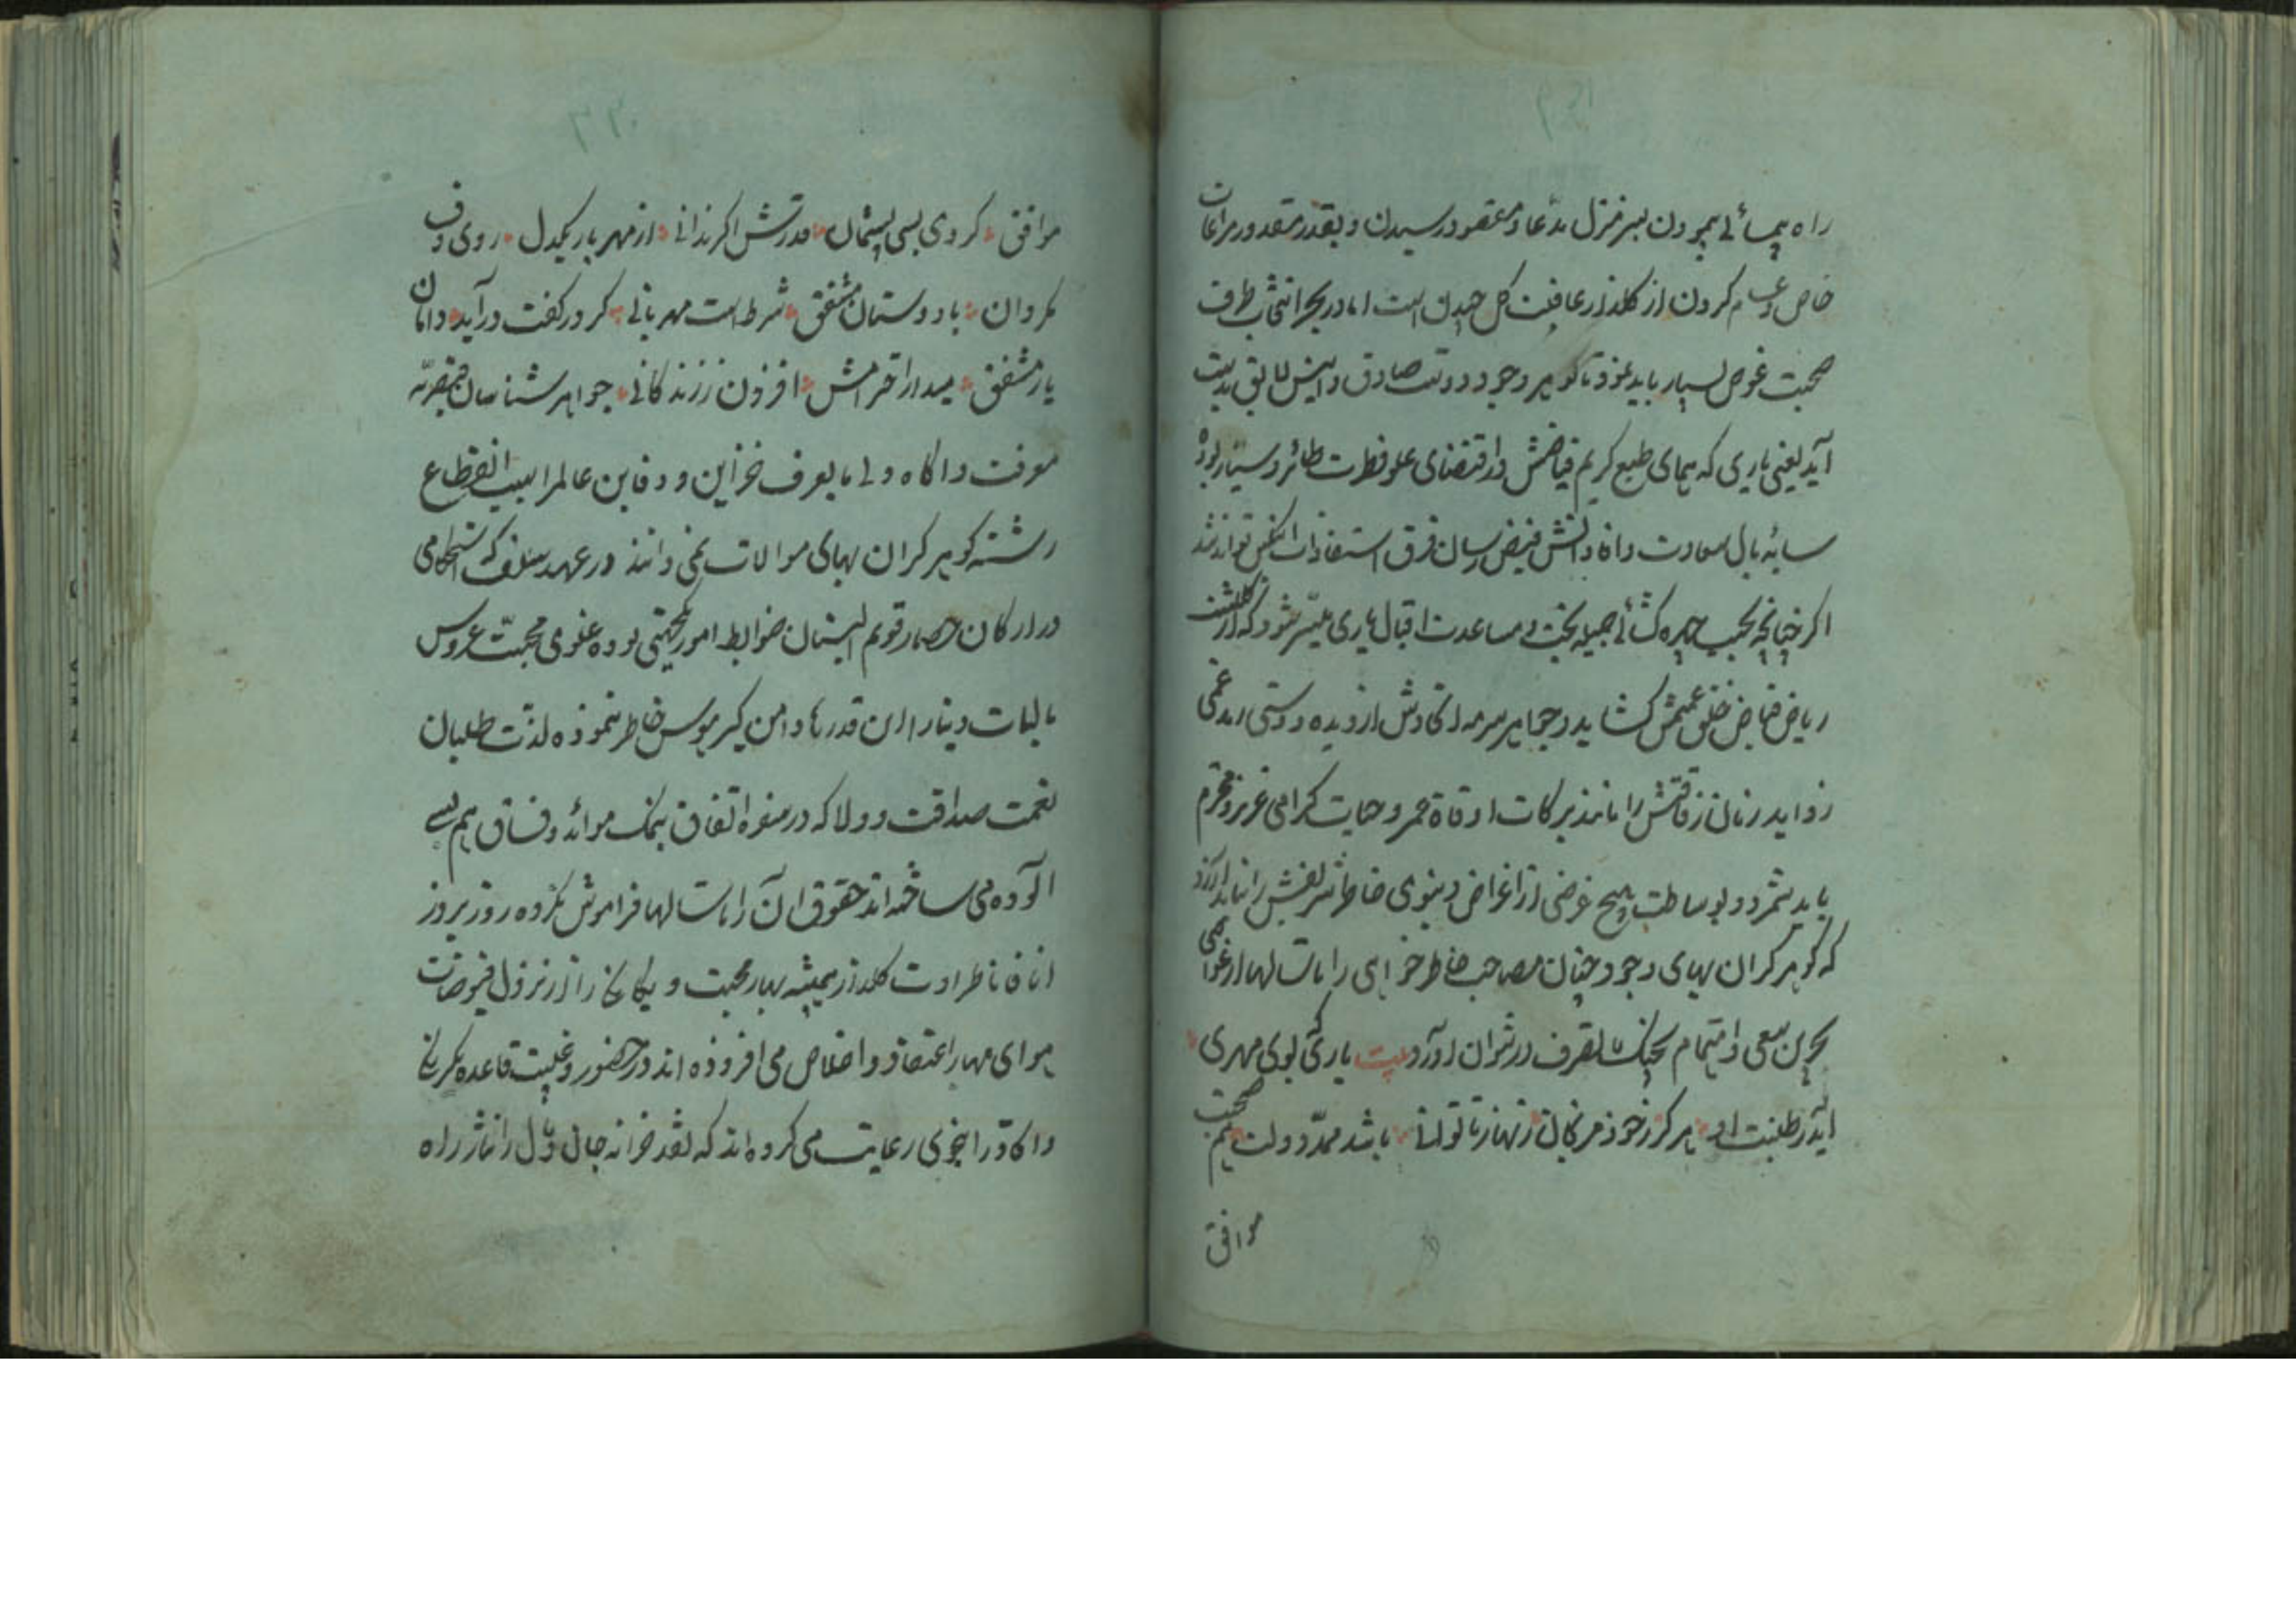 راه پیمائی پیمودن بسر منزل مدّعا و مقصود رسیدن و بقدر مقدور مراعات
خاص و عام کردن از کلزار عافیت کل چیدن است اما در بحر انتخاب طرف
صحبت غوص بسیار باید نمود تا کوهر وجود دوست صادق و انیس لایق بدست
آید یعنی یاری که همای طبع کریم فیاضش در اقتضای علو فطرت طائر و سیار بوده
سایهٔ بال سعادت دانش فیض رسان فرق استفادات انکس تواند شد
اکر چنانچه بحسب چهره کشائی جمیله بخت و مساعدت اقبال یاری میسّر شود که از کلشن
ریاض فیاض خلق عمیمش کشاید و جواهر سرمه از دیده دوستی
زداید زمان رفاقتش را مانند برکات اوقات عمر و حیات کرامی عزیز و محترم
باید شمرد و بوساطت هیچ غرضی از اغراض دنیوی خاطر شریفش را نباید آزرد
که کوهر کران بهای وجود چنان مصاحب خاطر خواهی را بسالها از غواصی
بحرین سعی و اهتمام بچنک تصرف در نتوان آورد بیت یاری که بوی مهری
آید ز طینت او هرکز ز خود مرنجان زنهار تا توانی باشد ممدّ دولت صحبت
موافق
موافق کردی بسی پشیمان قدرش اکر ندانی از مهر یار یکدل روی وفا
مکردان با دوستان مشفق شرط است مهربانی کر در کفت درآید دامان
یار مشفق میدار احترامش افزون ز زندکانی جواهر شناسان
معرفت و اکاه دلی مایعرف خزاین و دفاین عالم را سبب انقطاع
رشته کوهر کران بهای موالات نمی دانند در عهد سلف که استحکامی
در ارکان حصار قویم البنیان ضوابط امور یکجهتی بوده علوی محبّت عروس
مالیات دنیا را این قدرها دامن کیر هوس خاطر ننموده لذّت طلبان
نعمت صداقت و ولا که در سفره اتفاق بنمک موائد وفاق هم لبی
الوده می ساخته اند حقوق آن را بسالها فراموش نکرده روز بروز
انا فانا طراوت کلزار همیشه بهار محبت و یکانکی را از نزول فیوضات
هوای بهار اعتقاد و اخلاص می افزوده اند در حضور و غیبت قاعده یکرنکی
و اکادرا بخوبی رعایت می کرده اند که نقد خزانه جان و دل را نثار راه